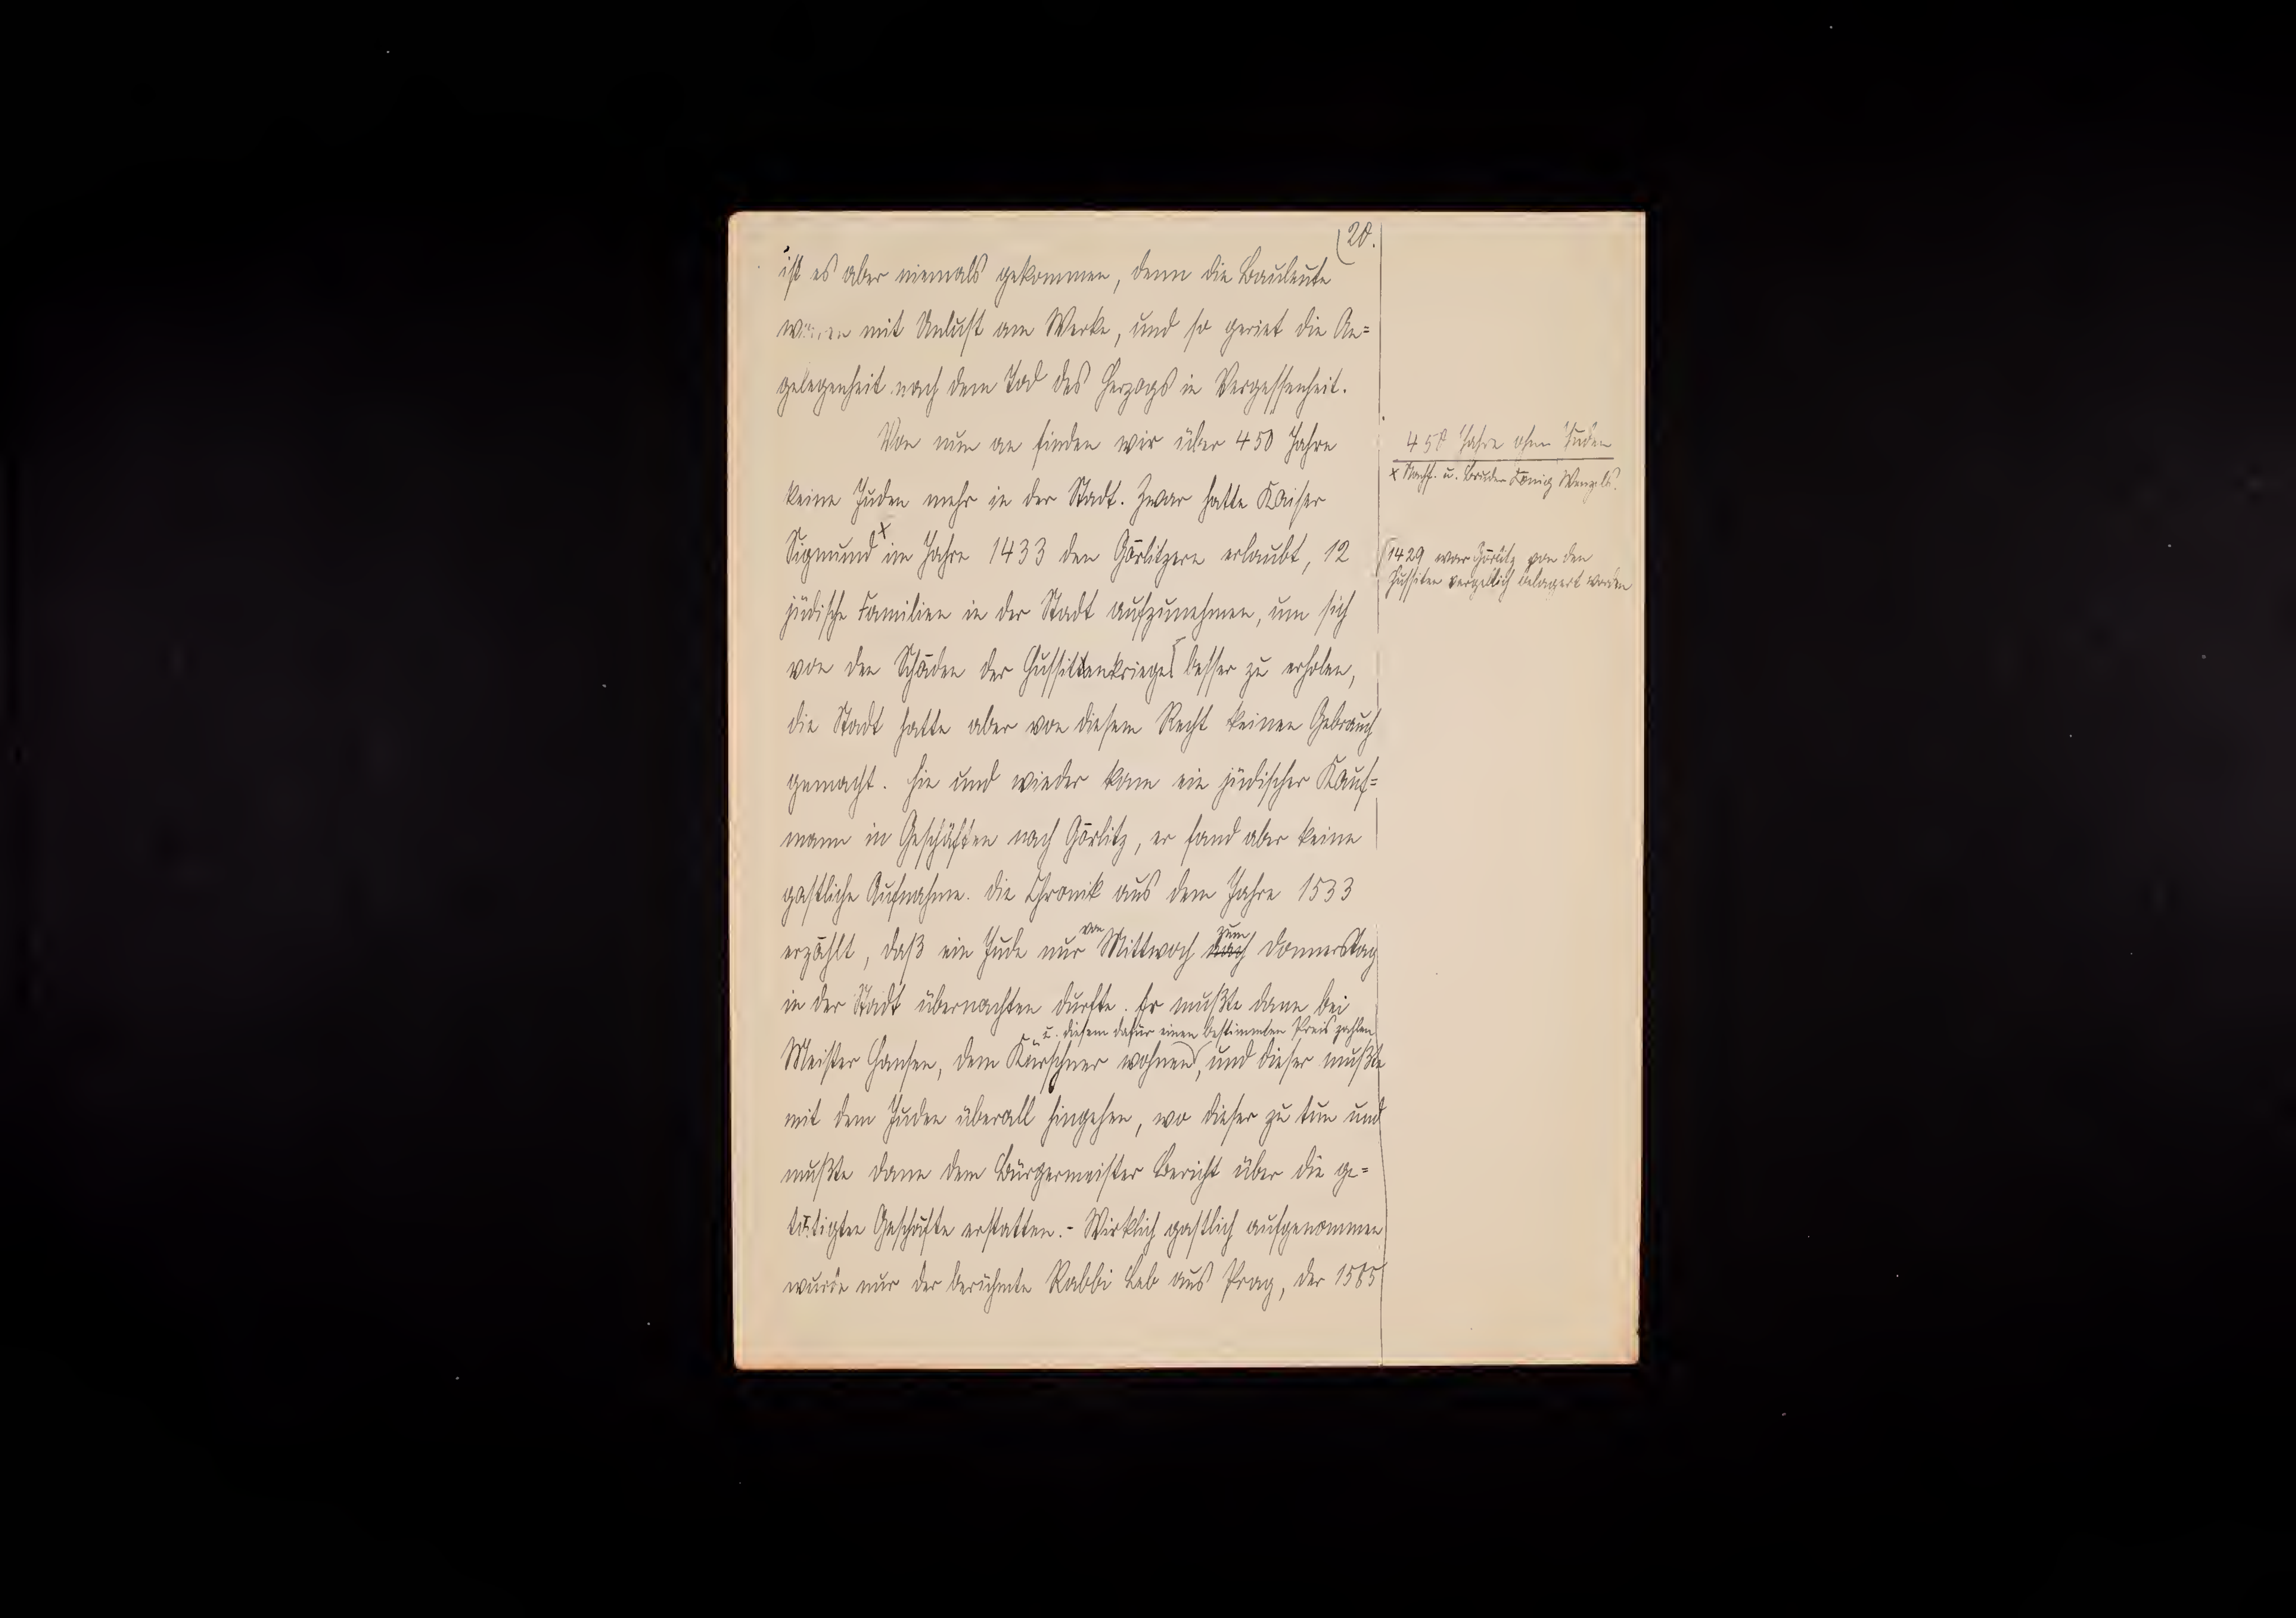 20.
ist es aber niemals gekommen, denn die Bauleute
waren mit Unlust am Werke, und so geriet die An=
gelegenheit nach dem Tod des Herzogs in Vergessenheit.
Von nun an finden wir über 450 Jahre
keine Juden mehr in der Stadt. Zwar hatte Kaiser
Sigmund x im Jahre 1433 den Görlitzern erlaubt, 12
jüdische Familien in der Stadt aufzunehmen, um sich
von den Schäden der Hussitenkriege besser zu erholen,
die Stadt hatte aber von diesem Recht keinen Gebrauch
gemacht. Hie und wieder kam ein jüdischer Kauf=
mann in Geschäften nach Görlitz, er fand aber keine
gastliche Aufnahme. Die Chronik aus dem Jahre 1533
von zum
erzählt, daß ein Jude nur Mittwoch nach Donnerstag
in der Stadt übernachten durfte. Er mußte dann bei
u. diesem dafür einen bestimmten Preis zahlen
Meister Hansen, dem Kürschner wohnen, und dieser mußte
mit dem Juden überall hingehen, wo dieser zu tun und
mußte dann dem Bürgermeister Bericht über die ge=
tätigten Geschäfte erstatten.- Wirklich gastlich aufgenommen
wurde nur der berühmte Rabbi Leb aus Prag, der 1585
450 Jahre ohne Juden
x Nachf. u. Bruder König Wenzels.
1429 war Görlitz von den
Hussiten vergeblich belagert worden